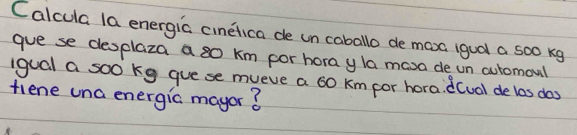 Calcula la energía cinélica de un caballo de maxa igual a 500 kg
que se desplaza a 80 Km por hora y la masa de un automovl
igual a 500 kg que se mueve a 60 Km por hora. ¿Cual de las dos
tiene una energía mayor?